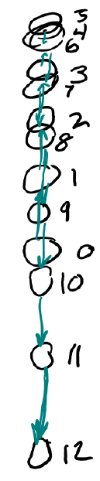 5
4
6
3
7
2
8
1
9
0
10
11
12